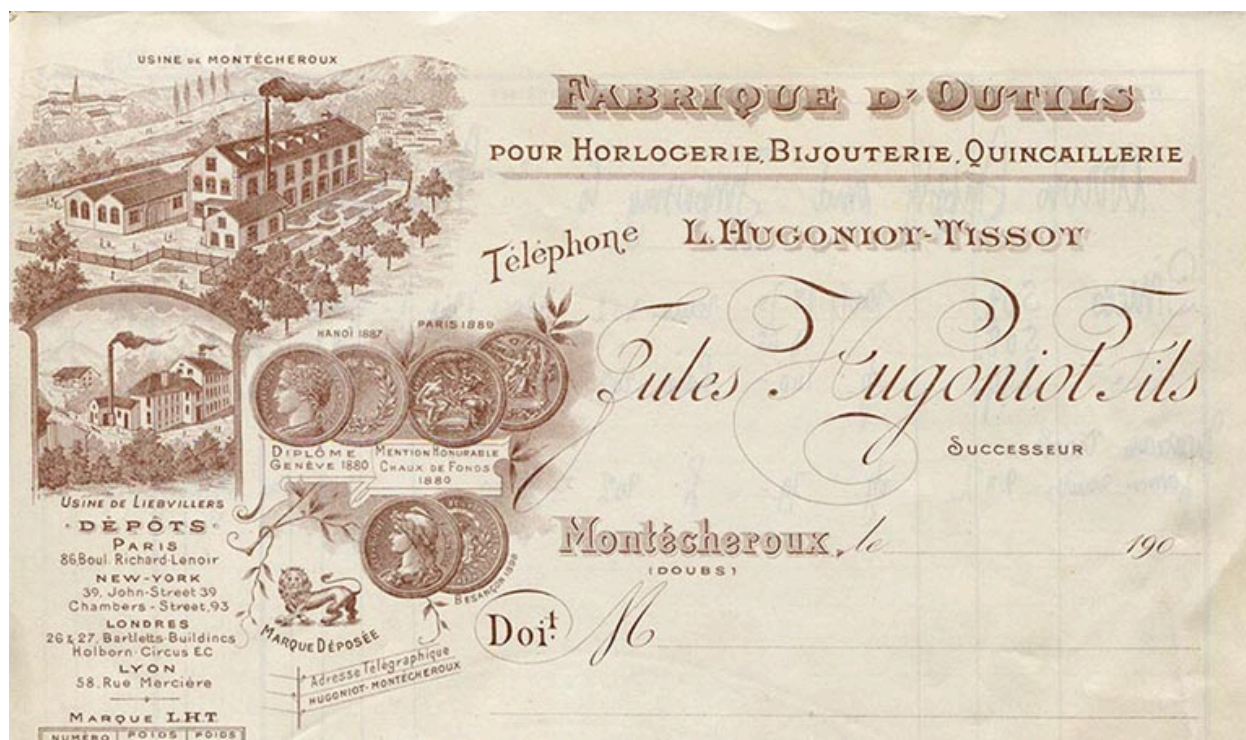 USINE DE MONTÉCHEROUX
FABRIQUE D'OUTILS
POUR HORLOGERIE, BIJOUTERIE, QUINCAILLERIE
Téléphone
L. HUGONIOT-TISSOT
Jules Hugoniot Fils
SUCCESSEUR
HANOÏ 1887
PARIS 1889
DIPLÔME
GENÈVE 1880
MENTION HONORABLE
CHAUX DE FONDS
1880
BESANÇON 1898
USINE DE LIEBVILLERS
DÉPÔTS
PARIS
86, Boul. Richard-Lenoir
NEW-YORK
39, John-Street 39
Chambers-Street, 93
LONDRES
26 & 27, Bartletts-Buildincs
Holborn-Circus E.C
LYON
58, Rue Mercière
MARQUE L.H.T.
NUMÉRO POIDS POIDS
MARQUE DÉPOSÉE
Adresse Télégraphique
HUGONIOT-MONTÉCHEROUX
Montécheroux, le 190
(DOUBS)
Doit M